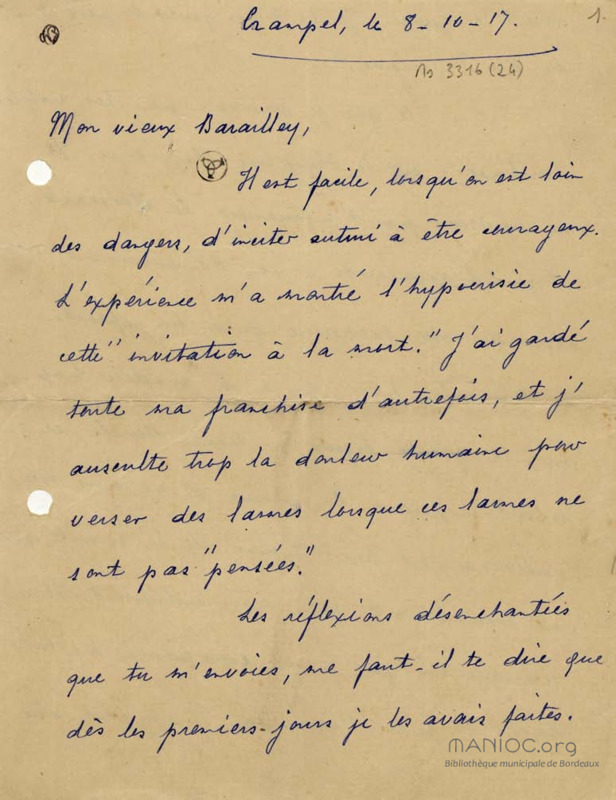 Crampel, le 8-10-17.
1.
Ms 3316 (24)
Mon vieux Barailley,
Il est facile, lorsqu'on est loin
des dangers, d'inciter autrui à être courageux.
L'expérience m'a montré l'hypocrisie de
cette "invitation à la mort." J'ai gardé
toute ma franchise d'autrefois, et j'
ausculte trop la douleur humaine pour
verser des larmes lorsque ces larmes ne
sont pas "pensées."
Les réflexions désenchantées
que tu m'envoies, me faut-il te dire que
dès les premiers-jours je les avais faites.
MANIOC.org
Bibliothèque municipale de Bordeaux